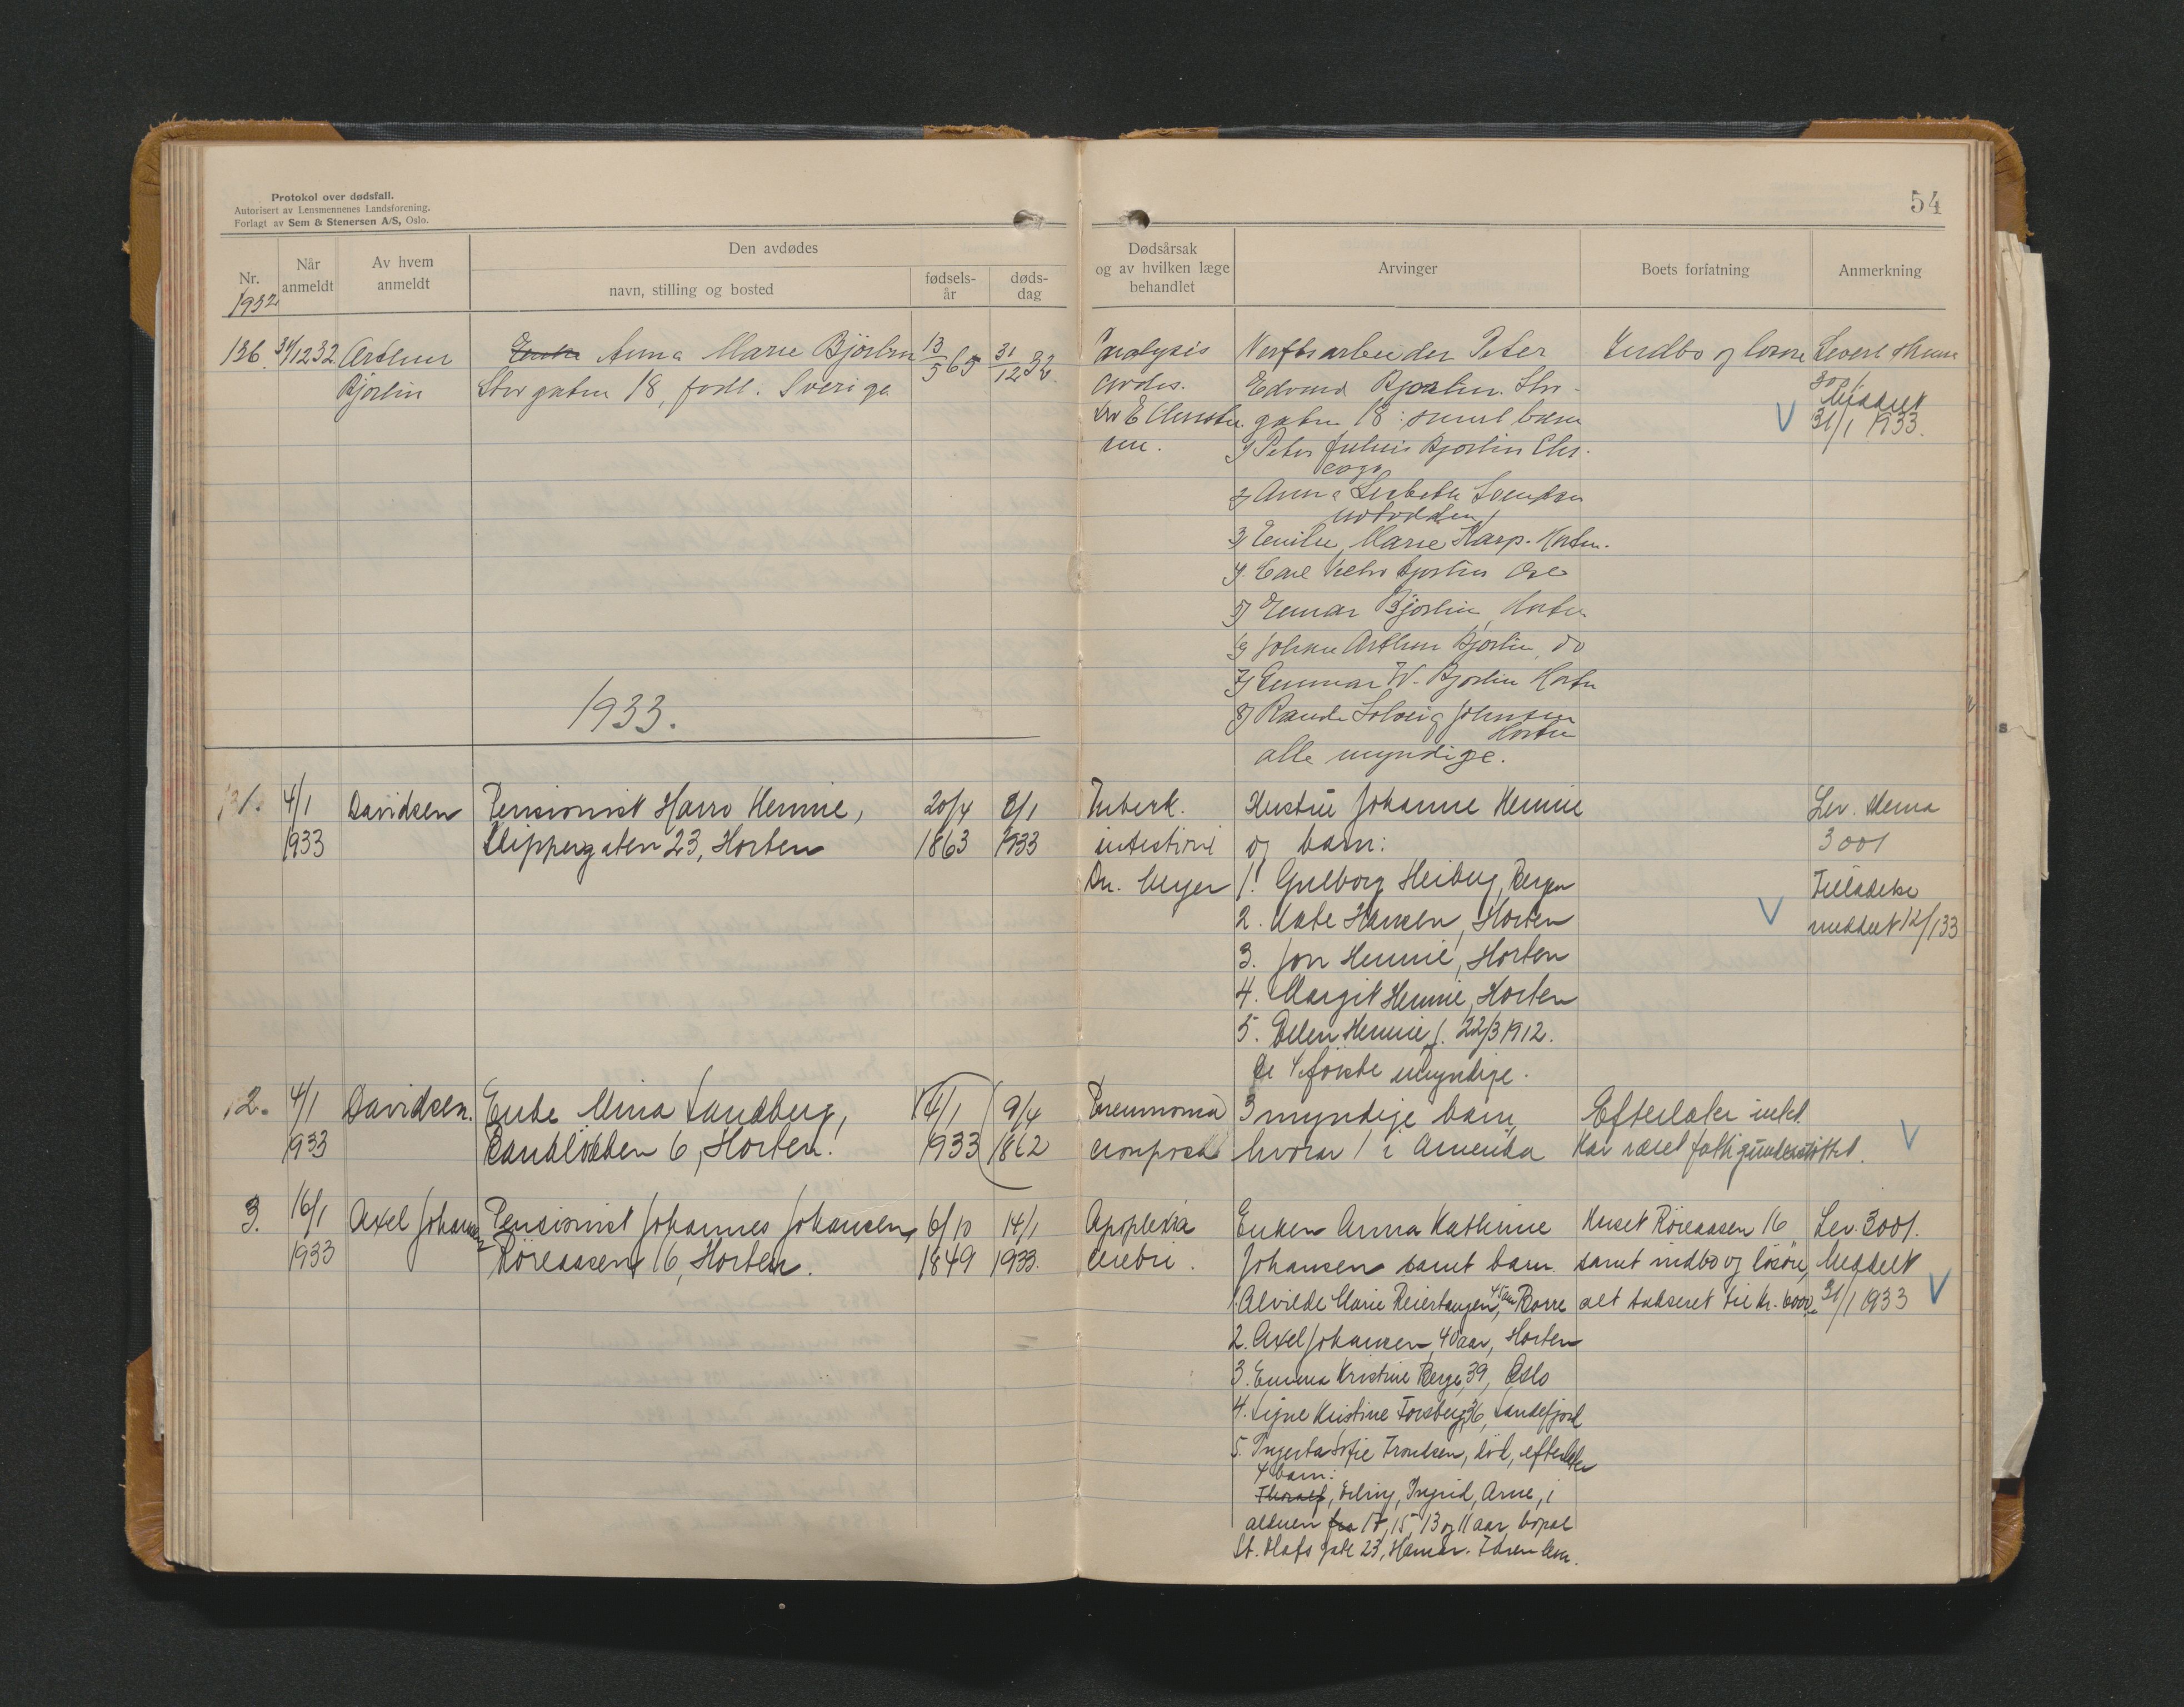 Protokol over dødsfall.
Autorisert av Lensmennenes Landsforening.
Forlagt av Sem & Stenersen A/S, Oslo.
54
Nr.
Når anmeldt
Av hvem anmeldt
Den avdødes
navn, stilling og bosted
fødsels-år
døds-dag
Dødsårsak og av hvilken læge behandlet
Arvinger
Boets forfatning
Anmerkning
1932
136. 31/12 32 Arthur Anna Marie Bjørlin 13/5 65 31/12 32
Bjørlin Storgaten 18, født. Sverige
Paralysis
cordis.
Dr E
Verftsarbeider Peter
Edvard Bjørlin. Stor-
gaten 18: samt barn
1) Peter Julius Bjørlin Chi-
cago
2) Anna Lisbeth
Notodden
3) Emilie Marie Karp. Horten.
4. Carl Bjørlin Oslo
5) Einar Bjørlin, Horten
6) Johan Arthur Bjørlin, do
7) Gunnar W. Bjørlin Horten
8) Solveig Johnsen
Horten
alle myndige.
Indbo og løsøre
Levert skema
3001
Meddelt
31/1 1933.
1933.
1. 4/1 Davidsen Pensionist Harro Hennie, 20/4 2/1
1933 Skippergaten 23, Horten 1863 1933
Tuberk.
intestini
Dr. Meyer
Hustru Johanne Hennie
og barn:
1. Gulborg Heiberg, Bergen
2. Kate Hansen, Horten
3. Jon Hennie, Horten
4. Margit Hennie, Horten
5. Ellen Hennie f. 22/3 1912.
De 4 første myndige.
Lev. skema
3001
Tilladelse
meddelt 12/1 33
2. 4/1 Davidsen. Enke Mina Sandberg, 4/1 9/4
1933 6, Horten. 1933 1862
Pneumonia
crouposa
3 myndige barn,
hvorav 1 i Amerika
Efterlater intet
Har været fattigunderstøttet.
3. 16/1 Axel Johansen Pensionist Johannes Johansen, 6/10 14/1
1933 Røreaasen 16, Horten. 1849 1933.
Apoplexia
cerebri.
Enken Anna Kathrine
Johansen samt barn.
1. Alvilde Marie Reiertangen, 45 aar, Borre
2. Axel Johansen, 40 aar, Horten
3. Emma Kristine Berge, 39, Oslo
4. Signe Kristine Forsberg, 36, Sandefjord
5. Ingerta Sofie Trondsen, död, efterlater
4 barn:
Thoralf, Erling, Ingrid, Arne, i
alderen fra 17, 15, 13 og 11 aar, bopæl
St. Olafs gate 23, Hamar.
Huset Røreaasen 16
samt indbo og løsøre,
alt takseret til kr. 6000
Lev. 3001.
Meddelt
31/1 1933